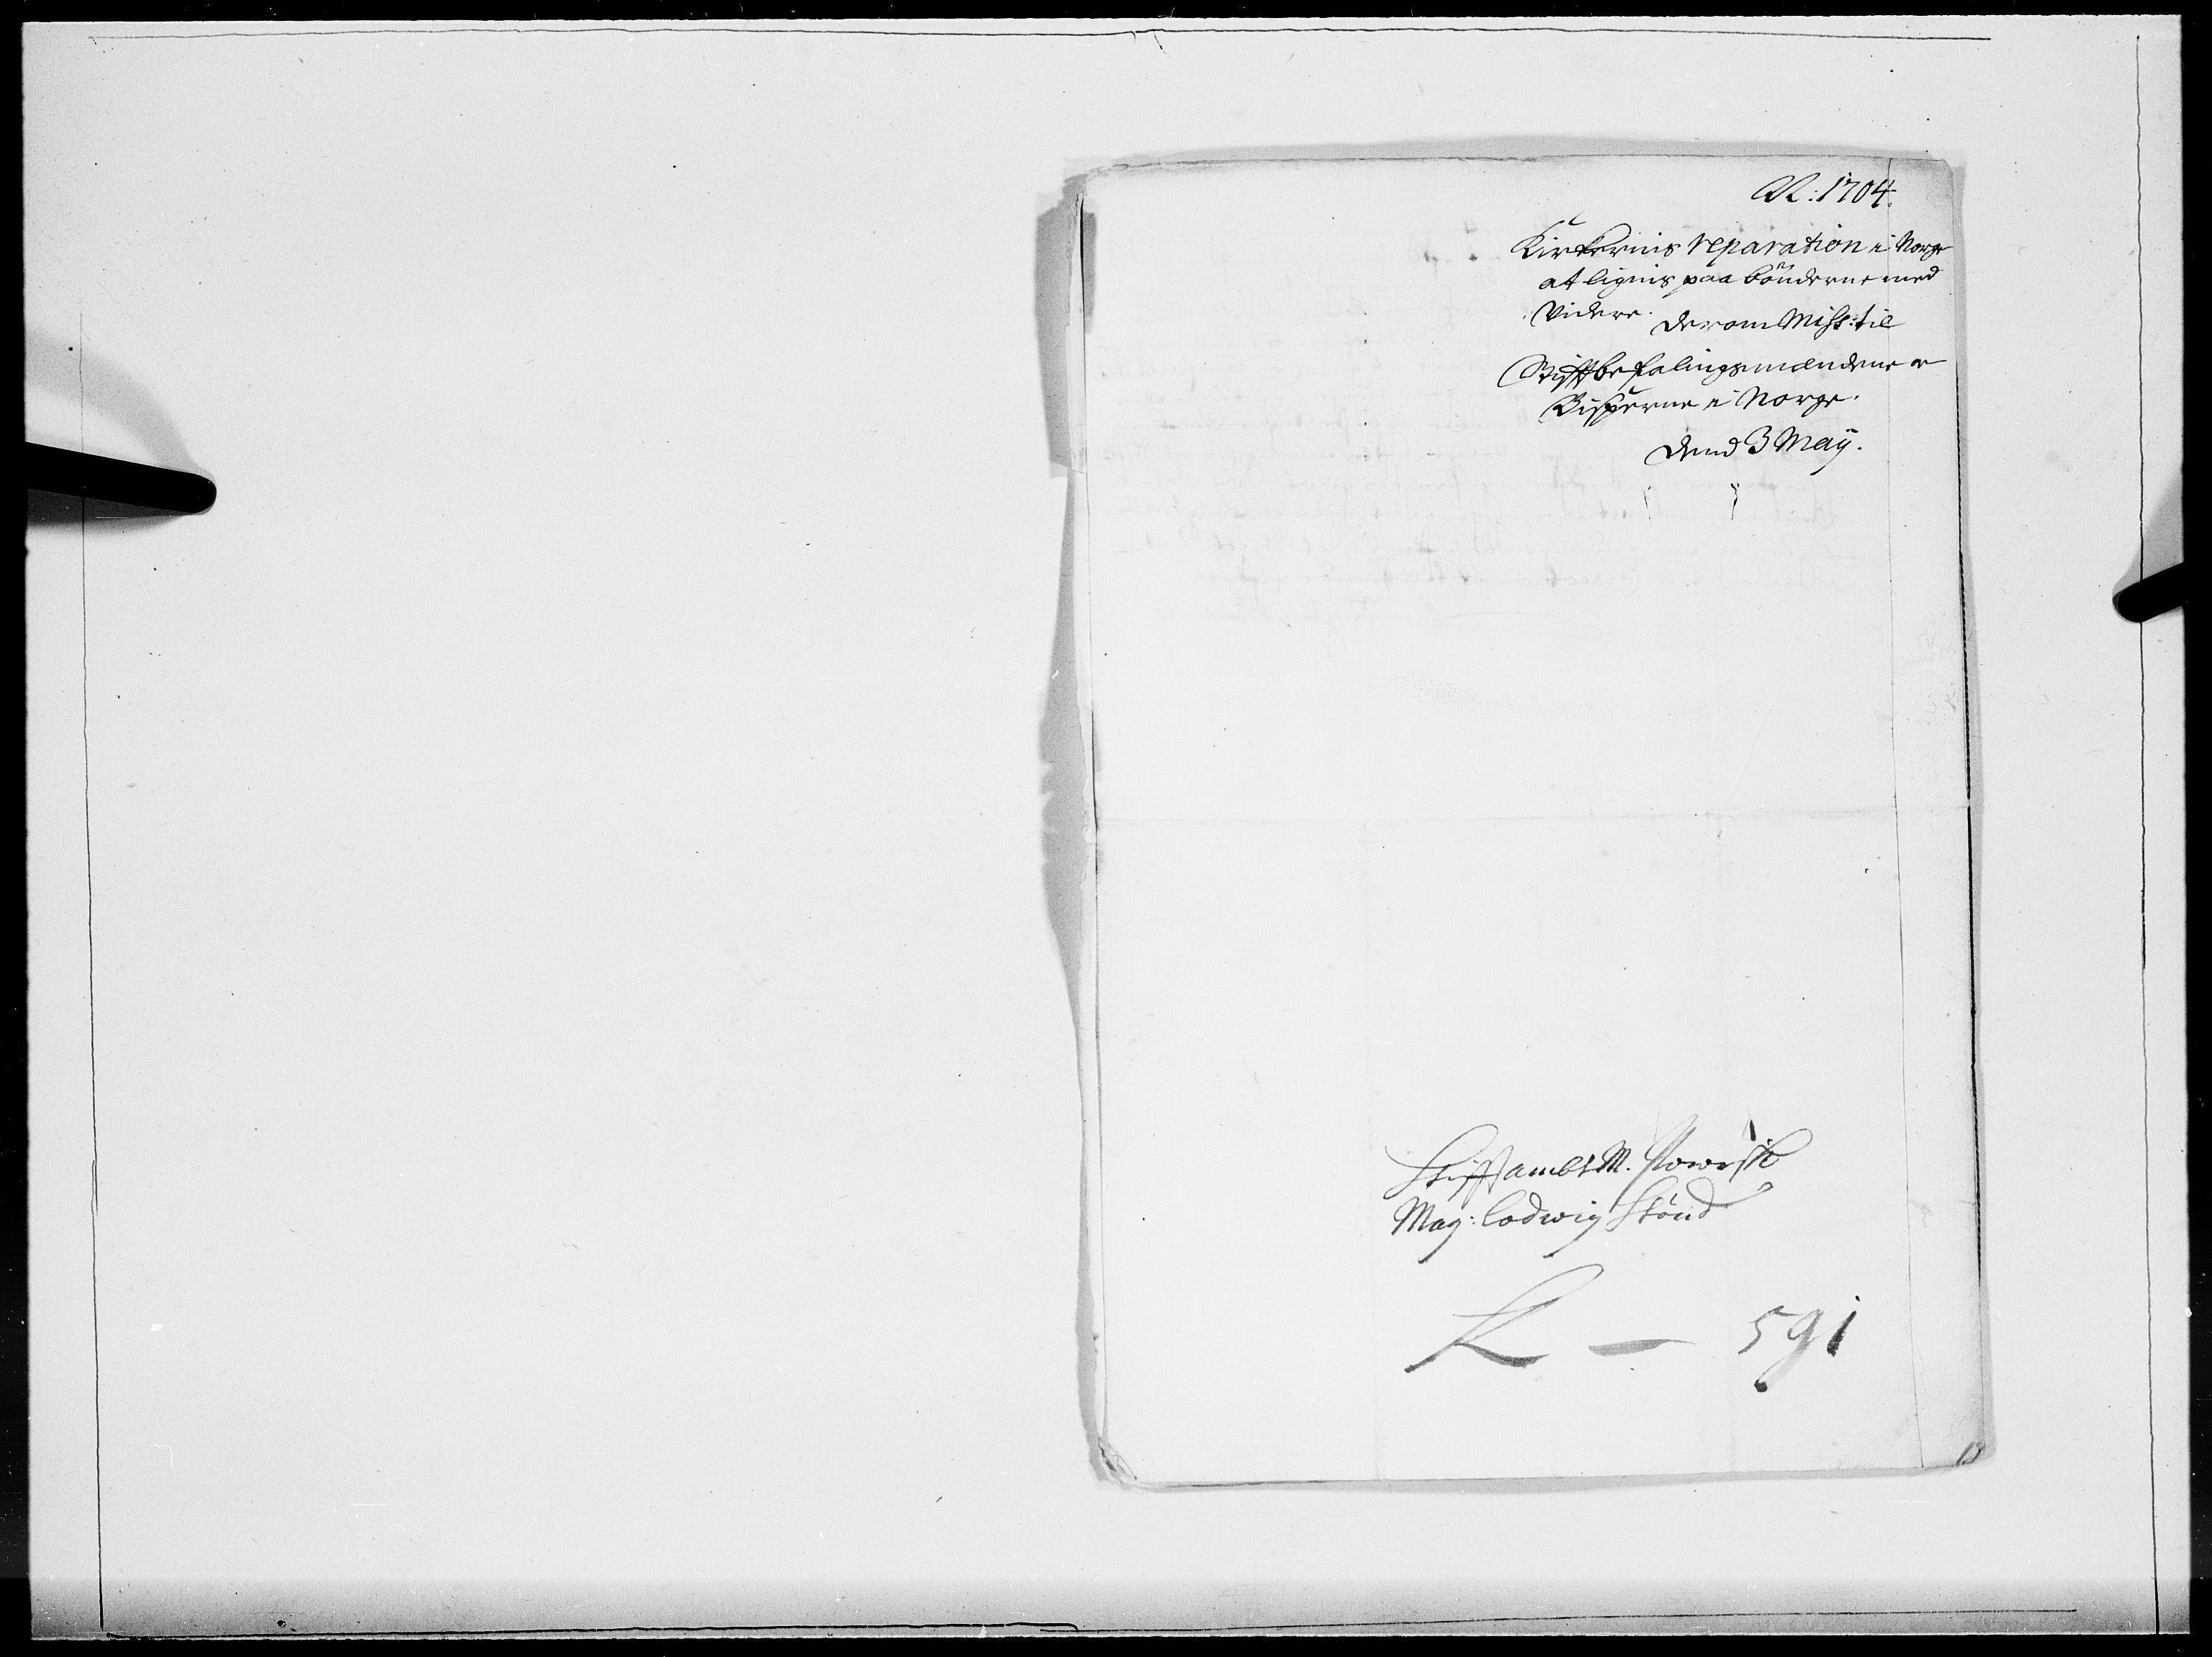 A2: 1704.
Kirkernis reparation i Norge
at lignis paa bönderne med
Videre. Derom Miss: til
Stiftbefalingsmændene oc
Bisperne i Norge.
Dend 3 Maÿ.
Stifftambt M.
Mag: Lodwig Stöud
L — 591